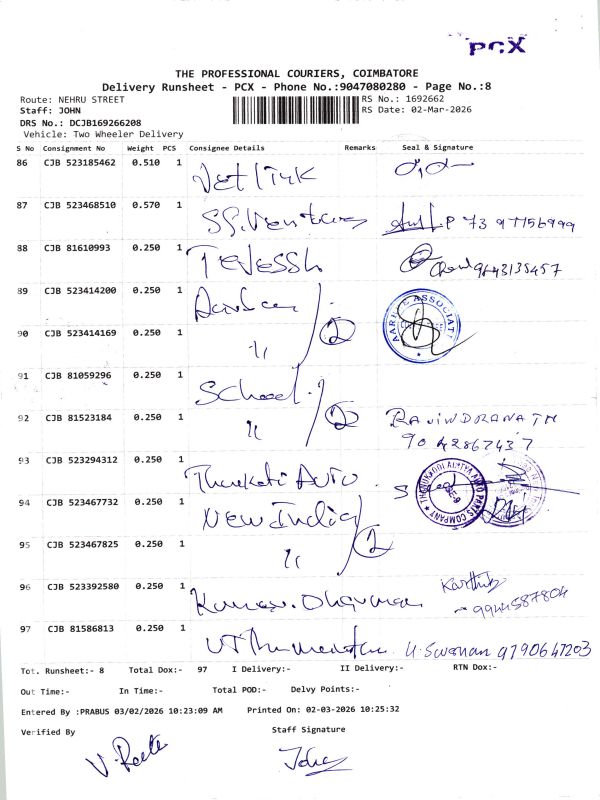 PCX
THE PROFESSIONAL COURIERS, COIMBATORE
Delivery Runsheet - PCX - Phone No.:9047080280 - Page No.:8
Route: NEHRU STREET
RS No.: 1692662
Staff: JOHN
RS Date: 02-Mar-2026
DRS No.: DCJB169266208
Vehicle: Two Wheeler Delivery
S No Consignment No Weight PCS Consignee Details Remarks Seal & Signature
86 CJB 523185462 0.510 1
87 CJB 523468510 0.570 1 SS.Ventures
88 CJB 81610993 0.250 1 9643135457
89 CJB 523414200 0.250 1
90 CJB 523414169 0.250 1 " 2
91 CJB 81059296 0.250 1 School
92 CJB 81523184 0.250 1 " 2 RAVINDRANATH
9042867437
93 CJB 523294312 0.250 1 Auto
94 CJB 523467732 0.250 1 New India
95 CJB 523467825 0.250 1 " 2
96 CJB 523392580 0.250 1 Kumar. Karthik
9944587804
97 CJB 81586813 0.250 1 9190647203
Tot. Runsheet:- 8 Total Dox:- 97 I Delivery:- II Delivery:- RTN Dox:-
Out Time:- In Time:- Total POD:- Delvy Points:-
Entered By :PRABUS 03/02/2026 10:23:09 AM Printed On: 02-03-2026 10:25:32
Verified By
Staff Signature
John